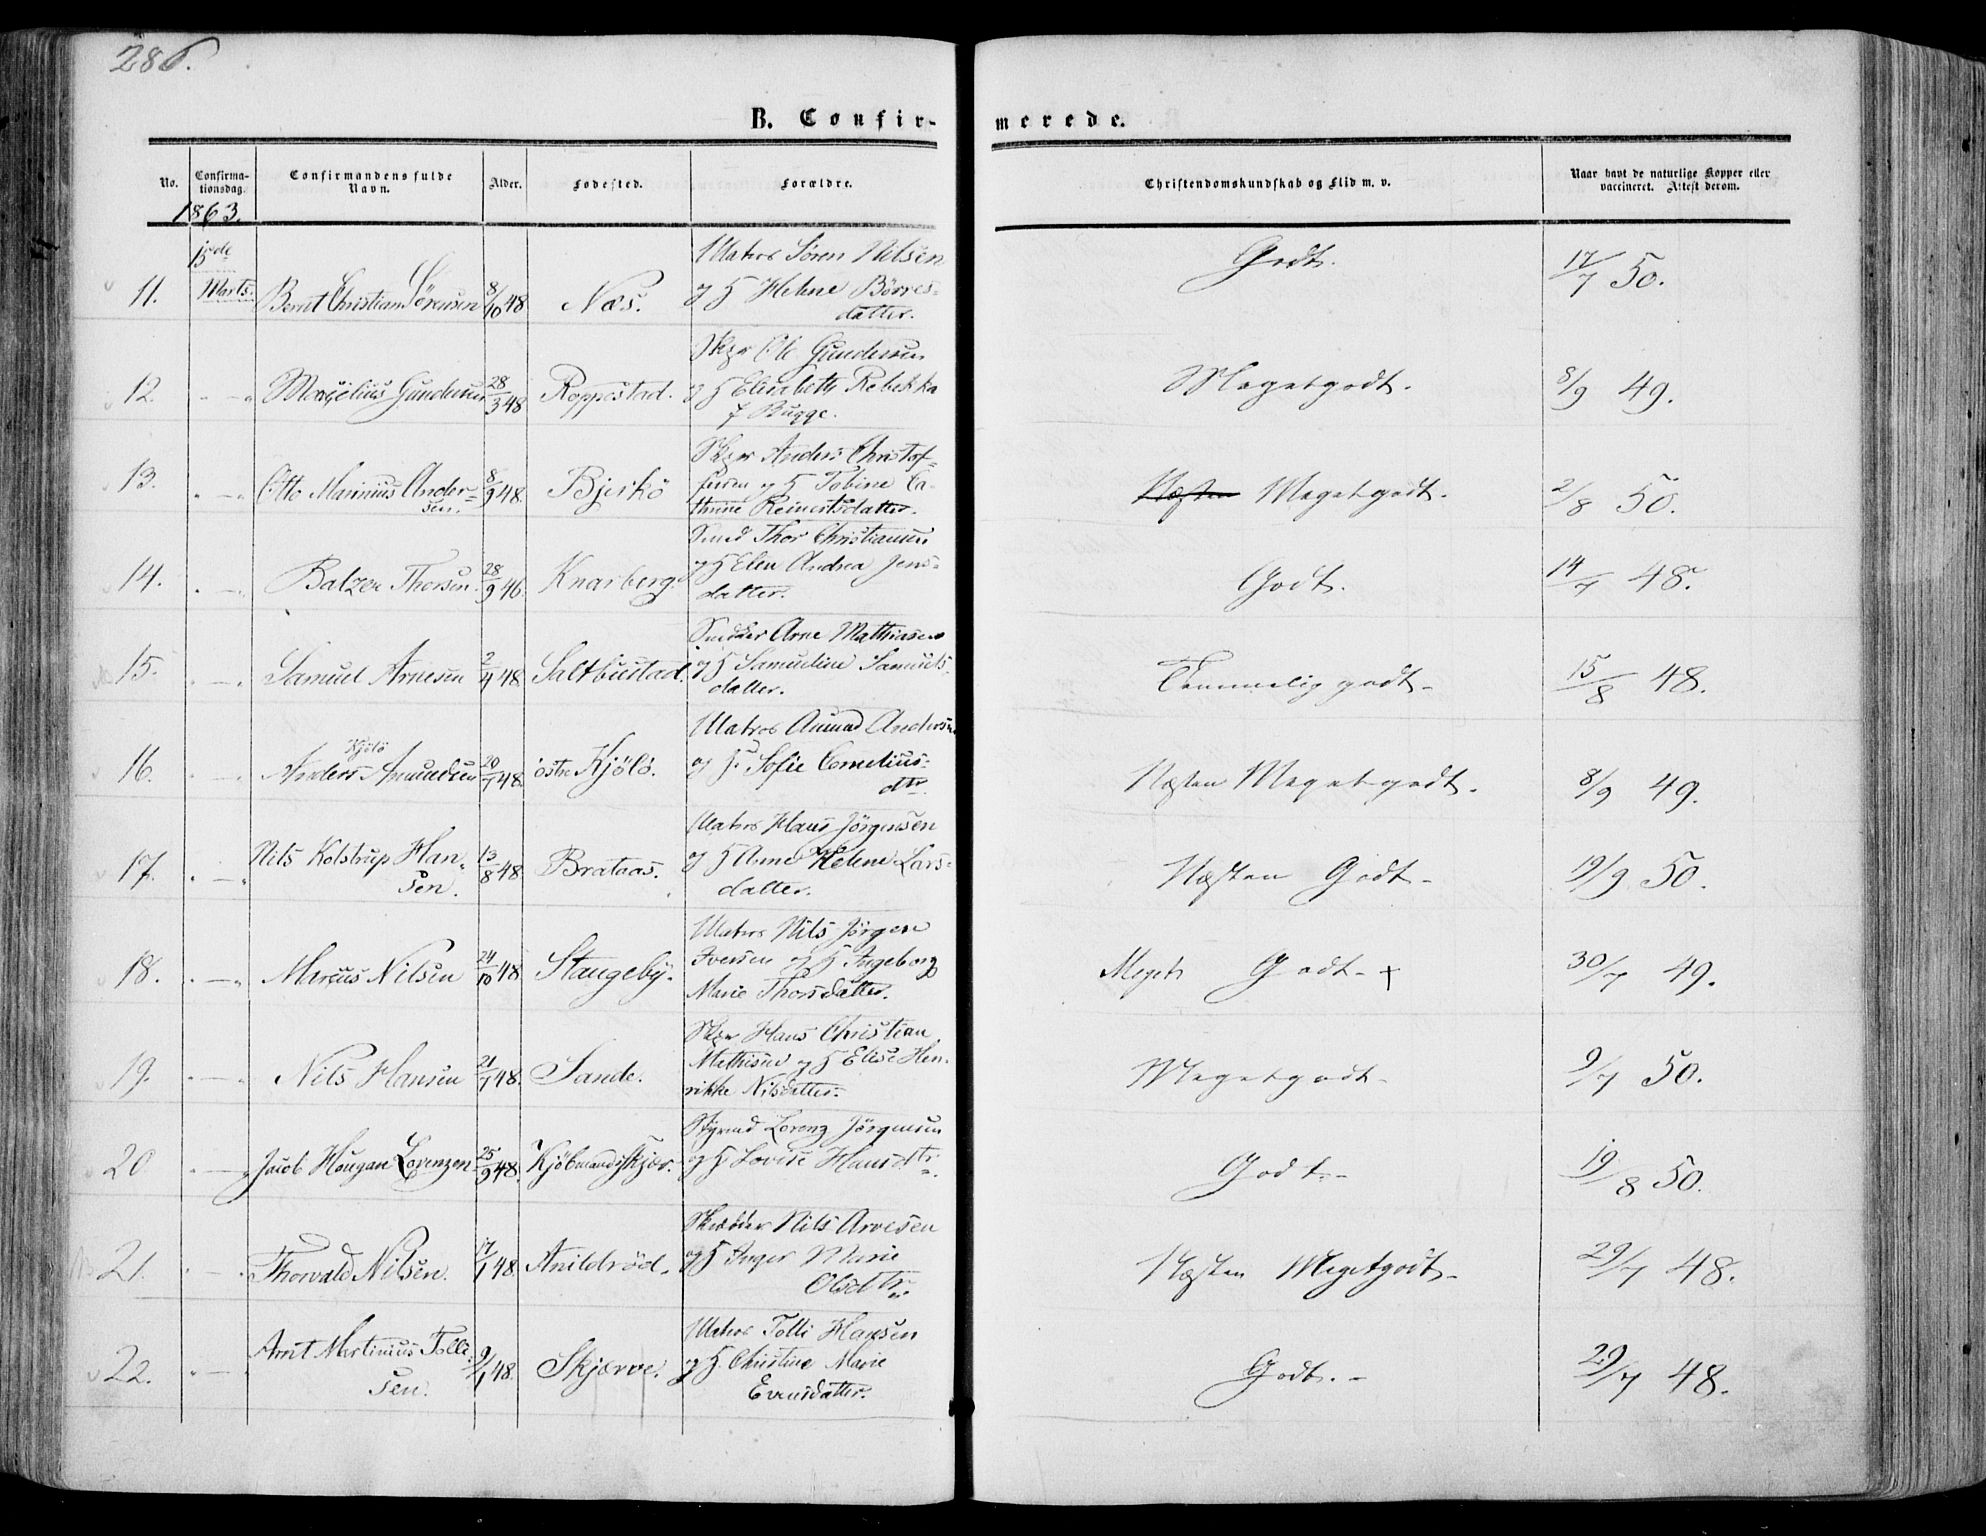 286.
B. Confir-
merede.
No.
Confirma-
tionsdag.
Confirmandens fulde
Navn.
Alder.
Fødested.
Forældre.
Christendomskundskab og Flid m. v.
Naar havt de naturlige Kopper eller
vaccineret. Attest derom.
1863.
15de
Marts.
11. Bernt Christian Sörensen 8/10 48. Næs.
Matros Sören Nilsen
og H Helene Börres-
datter.
Godt. 17/7 50.
12. " — " Marselius Gundersen 28/3 48 Roppestad.
Skpr Ole Gundersen
og H Elisabeth Rebekka
f Bugge.
Megetgodt. 8/9 49.
13. " — " Otto Marinius Ander-
sen. 8/9 48. Bjerkö
Skpr Anders Christof-
fersen og H Tobine Ca-
thrine Reinertsdatter.
Næsten Megetgodt. 2/8 50.
14. " — " Balzer Thorsen. 28/9 46. Knarberg.
Smed Thor Christiansen
og H Elen Andrea Jens-
datter.
Godt. 14/7 48.
15. " — " Samuel Arnesen 2/4 48. Saltbustad.
Snedker Arne Mathiasen
og H Samueline Samuels-
datter.
Temmelig godt. 15/8 48.
Kjölö
16. " — " Anders Amundsen 20/1 48. östre Kjölö.
Matros Amund Andersen
og H. Sofie Cornelius-
dtr
Næsten Megetgodt. 8/9 49.
17. " — " Nils Kolstrup Han-
sen. 13/8 48. Brataas.
Matros Hans Jörgensen
og H Anne Helene Lars-
datter.
Næsten Godt. 19/9 50.
18. " — " Marcus Nilsen 24/10 48 Stangeby.
Matros Nils Jörgen
Iversen og H Ingeborg
Marie Thorsdatter.
Megets Godt. + 30/7 49.
19. " — " Nils Hansen 21/1 48. Sande.
Skpr Hans Christian
Mathisen og H Elise Hen-
rikke Nilsdatter.
Megetgodt. 9/7 50.
20 " — " Jacob Hougan Lorenzen 25/9 48. Kjöbmandsskjær.
Styrmd Lorenz Jörgensen
og H. Lovise Hansdtr.
Godt. 19/8 50.
21. " — " Thorvald Nilsen. 17/1 48. Anildröd.
Skrædder Nils Arvesen
og H Inger Marie
Olsdtr.
Næsten Megetgodt. 29/7 48.
22. " — " Arnt Martinius Tolli-
sen. 9/1 48. Skjærve.
Matros Tolli Hansen
og H. Christine Marie
Evensdatter.
Godt. 29/7 48.